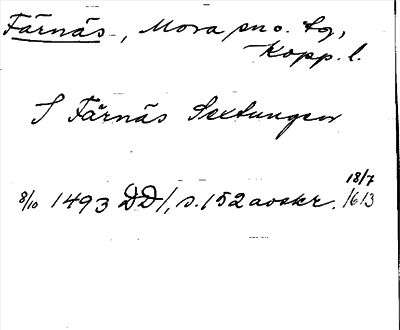 Färnäs, Mora sn o. tg,
Kopp. l.
S Färnäs Sextungen
8/10 1493 DD 1, s. 152 avskr. 18/7 1613